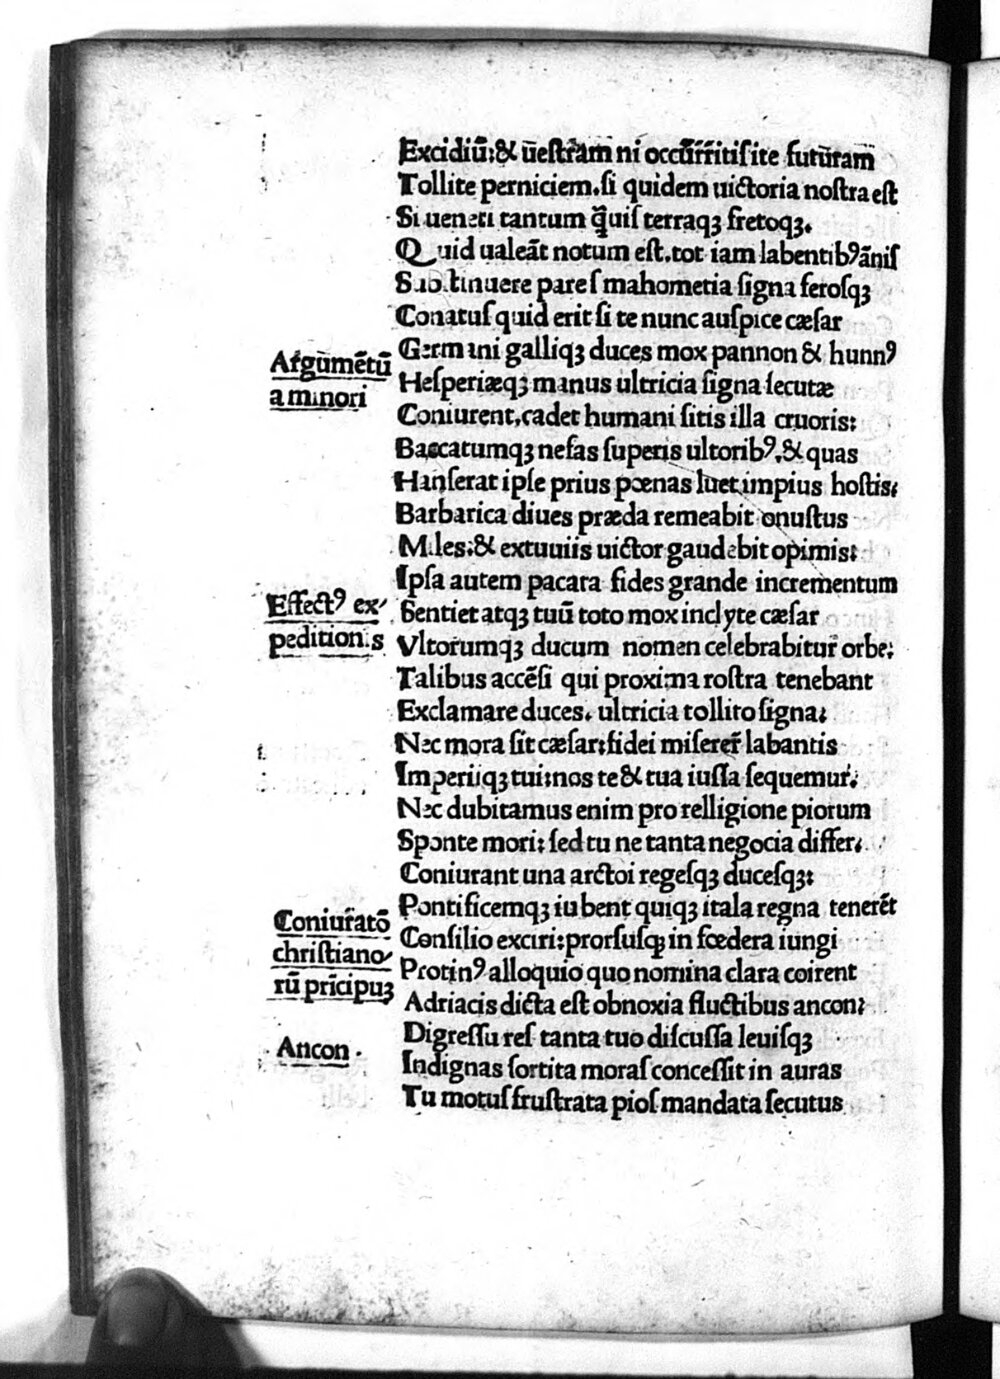 Excidiū:& ūeſtram ni occūrritiſ ite futūram
Tollite perniciem.ſi quidem uictoria noſtra eſt
Si ueneti tantum q̄uiſ terraqꝫ fretoqꝫ.
Quid ualeāt notum eſt.tot iam labentibꝰ āniſ
Suſtinuere pareſ mahometia ſigna feroſqꝫ
Conatuſ quid erit ſi te nunc auſpice cæſar
Argumētū
a minori
Germani galliqꝫ duces mox pannon & hunnꝰ
Heſperiæqꝫ manus ultricia ſigna ſecutæ
Coniurent,cadet humani ſitis illa cruoris:
Baccatumqꝫ nefas ſuperis ultoribꝰ,& quas
Hauſerat ipſe prius pœnas luet impius hoſtis:
Barbarica diues præda remeabit onuſtus
Miles:& extuuiis uictor gaudebit opimis:
Effectꝰ ex⸗
peditionis
Ipſa autem pacata fides grande incrementum
Sentiet atqꝫ tuū toto mox inclyte cæſar
Vltorumqꝫ ducum nomen celebrabitur orbe:
Talibus accēſi qui proxima roſtra tenebant
Exclamare duces. ultricia tollito ſigna:
Nec mora ſit cæſar:fidei miſerer̄ labantis
Imperiiqꝫ tui:nos te & tua iuſſa ſequemur:
Nec dubitamus enim pro relligione piorum
Sponte mori: ſed tu ne tanta negocia differ.
Coniurant una arctoi regeſqꝫ duceſqꝫ:
Coniuratō
chriſtiano⸗
rū prīcipuꝫ
Pontificemqꝫ iubent quiqꝫ itala regna tenerēt
Conſilio exciri:prorſuſqꝫ in fœdera iungi
Protinꝰ alloquio quo nomina clara coirent
Adriacis dicta eſt obnoxia fluctibus ancon:
Ancon
Digreſſu reſ tanta tuo diſcuſſa leuiſqꝫ
Indignas ſortita moraſ conceſſit in auras
Tu motuſ fruſtrata pioſ mandata ſecutus